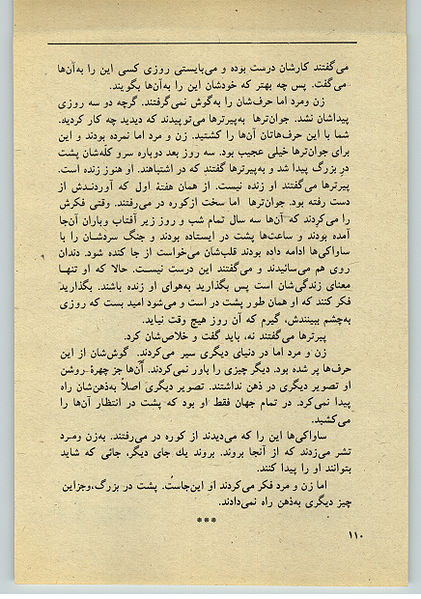 می‌گفتند کارشان درست بوده و می‌بایستی روزی کسی این را به‌آن‌ها
می‌گفت. پس چه بهتر که خودشان این را به‌آن‌ها بگویند.
زن ومرد اما حرف‌شان را به‌گوش نمی‌گرفتند. گرچه دو سه روزی
پیداشان نشد. جوان‌ترها به‌پیرترها می‌توپیدند که دیدید چه کار کردید.
شما با این حرف‌هاتان آن‌ها را کشتید. زن و مرد اما نمرده بودند و این
برای جوان‌ترها خیلی عجیب بود. سه روز بعد دوباره سرو کله‌شان پشت
در بزرگ پیدا شد و به‌پیرترها گفتند که در اشتباهند. او هنوز زنده است.
پیرترها می‌گفتند او زنده نیست. از همان هفتهٔ اول که آوردندش از
دست رفته بود. جوان‌ترها اما سخت ازکوره در می‌رفتند. وقتی فکرش
را می‌کردند که آن‌ها سه سال تمام شب و روز زیر آفتاب وباران آن‌جا
آمده بودند و ساعت‌ها پشت در ایستاده بودند و جنگ سردشان را با
ساواکی‌ها ادامه داده بودند قلب‌شان می‌خواست از جا کنده شود. دندان
روی هم می‌سائیدند و می‌گفتند این درست نیست. حالا که او تنها
معنای زندگی‌شان است پس بگذارید به‌هوای او زنده باشند. بگذارید
فکر کنند که او همان طور پشت در است و می‌شود امید بست که روزی
به‌چشم ببینندش، گیرم که آن روز هیچ وقت نیاید.
پیرترها می‌گفتند نه، باید گفت و خلاص‌شان کرد.
زن و مرد اما در دنیای دیگری سیر می‌کردند. گوش‌شان از این
حرف‌ها پر شده بود. دیگر چیزی را باور نمی‌کردند. آن‌ها جز چهرهٔ روشن
او تصویر دیگری در ذهن نداشتند. تصویر دیگری اصلاً به‌ذهن‌شان راه
پیدا نمی‌کرد. در تمام جهان فقط او بود که پشت در انتظار آن‌ها را
می‌کشید.
ساواکی‌ها این را که می‌دیدند از کوره در می‌رفتند. به‌زن ومرد
تشر می‌زدند که از آنجا بروند. بروند یك جای دیگر، جائی که شاید
بتوانند او را پیدا کنند.
اما زن و مرد فکر می‌کردند او این‌جاست. پشت در بزرگ، وجزاین
چیز دیگری به‌ذهن راه نمی‌دادند.
***
۱۱۰